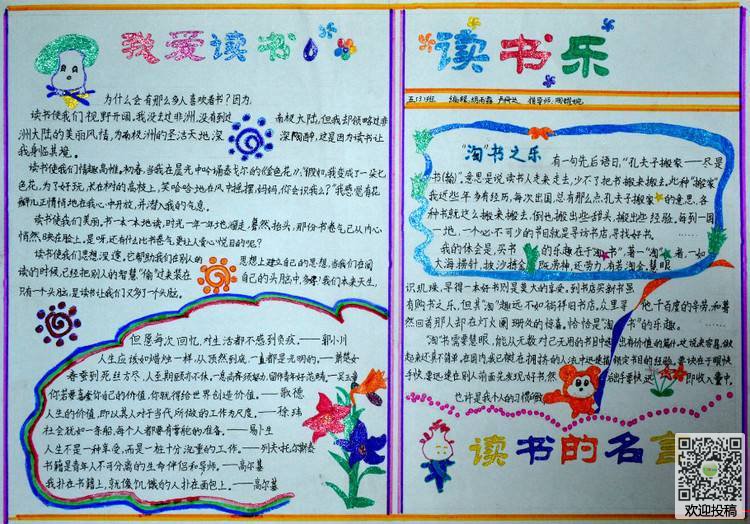 我爱读书
为什么会有那么多人喜欢看书？因为，
读书使我们视野开阔，我没去过非洲，没有到过
南极大陆，但我却领略过非
洲大陆的美丽风情，为南极洲的圣洁天地深
深陶醉，这是因为读书让
我身临其境。
读书使我们情趣高雅。初春，当我在晨光中吟诵泰戈尔的《金色花》："假如我变成了一朵
色花，为了好玩，长在树的高枝上，笑哈哈地在风中摇摆，妈妈，你会认识我么？"我感觉有花
瓣儿正悄悄地在我心中开放，并潜入我的气息。
读书使我们美丽。书一本一本地读，时光一年一年地溜走，蓦然抬头，那份书卷气已从内心
悄然映在脸上。是呀，还有什么比书卷气更让人赏心悦目的呢？
读书使我们思想深邃。它帮助我们在别人的
思想上建立自己的思想，当我们在阅
读的时候，已经把别人的智慧"偷"过来装在
自己的头脑中，多棒！我们本来天生，
只有一个头脑，是读书让我们又多了一个头脑。
但愿每次回忆，对生活都不感到负疚。——郭小川
人生应该如蜡烛一样，从顶燃到底，一直都是光明的。——萧楚女
春蚕到死丝方尽，人至期颐亦不休。一息尚存须努力，留作青年好范畴。——吴玉章
你若要喜爱你自己的价值，你就得给世界创造价值。——歌德
人生的价值，即以其人对于当代所做的工作为尺度。——徐玮
社会犹如一条船，每个人都要有掌舵的准备。——易卜生
人生不是一种享受，而是一桩十分沉重的工作。——列夫·托尔斯泰
书籍是青年人不可分离的生命伴侣和导师。——高尔基
我扑在书籍上，就像饥饿的人扑在面包上。——高尔基
读书乐
五(3)班
编辑：
指导师：
"淘"书之乐
有一句先后语曰，"孔夫子搬家——尽是
书(输)"。意思是说读书人走来走去，少不了把书搬来搬去。此种"搬家
我近些年多有经历，每次出国，总有那么点"孔夫子搬家"的意思，各
种书就这么搬来搬去，倒也搬出些甜头，搬出些经验。每到一国
一地，一个必不可少的节目就是寻访书店，寻找好书。
我的体会是，买书
的乐趣在于"淘书"，著一"淘"
者，一如
大海捞针，披沙拣金
既劳神，还劳力，有若淘金，慧眼
识珠，寻得一本好书则是莫大的享受。到书店买新书虽
有购书之乐，但其"淘"趣远不如徜徉旧书店，众里寻
他千百度的辛劳，和蓦
然回首那人却在灯火阑珊处的惊喜，恰恰是"淘
书"的乐趣。
"淘书"需要慧眼，能从元数对己无用的书目中
出有价值的篇什，这说来容易，做
起来还真不简单，在国内我已敢在拥挤的人流中迅速
锁定书目的经验。要快在于眼快
手快，要迅速在别人前面先发现好书，然
出手要快，迅
即收入囊中，
也许是我个人的习惯吧
读书的名言
欢迎投稿